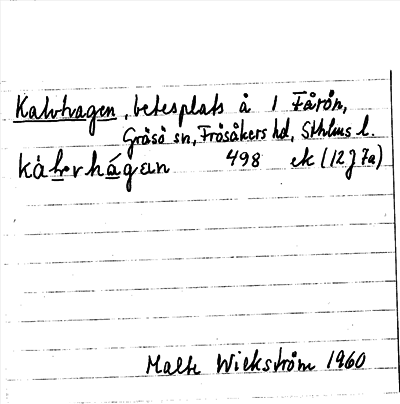 Kalvhagen, betesplats å 1 Fårön,
Gräsö sn, Frösåkers hd, Sthlms l.
498 ek (12 J 7a)
Malte Wickström 1960